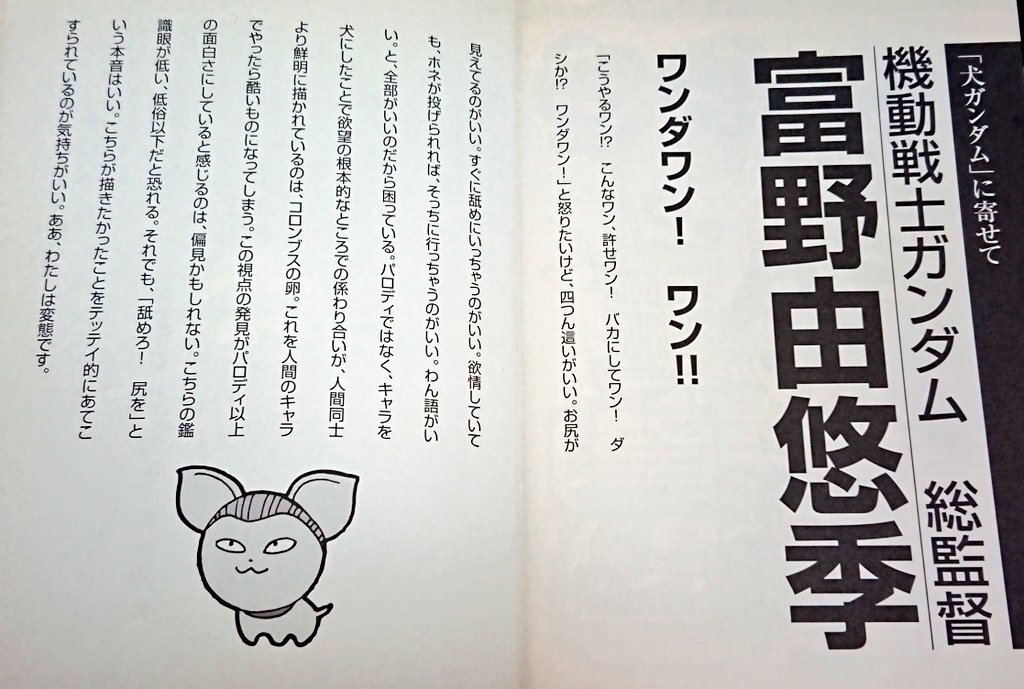 「犬ガンダム」に寄せて
機動戦士ガンダム　総監督
富野由悠季
ワンダワン！　ワン!!
「こうやるワン!?　こんなワン、許せワン！　バカにしてワン！　ダ
シか!?　ワンダワン！」と怒りたいけど、四つん這いがいい。お尻が
見えてるのがいい。すぐに舐めにいっちゃうのがいい。欲情していて
も、ホネが投げられれば、そっちに行っちゃうのがいい。わん語がい
い。と、全部がいいのだから困っている。パロディではなく、キャラを
犬にしたことで欲望の根本的なところでの係わり合いが、人間同士
より鮮明に描かれているのは、コロンブスの卵。これを人間のキャラ
でやったら酷いものになってしまう。この視点の発見がパロディ以上
の面白さにしていると感じるのは、偏見かもしれない。こちらの鑑
識眼が低い、低俗以下だと恐れる。それでも、「舐めろ！　尻を」と
いう本音はいい。こちらが描きたかったことをテッテイ的にあてこ
すられているのが気持ちがいい。ああ、わたしは変態です。